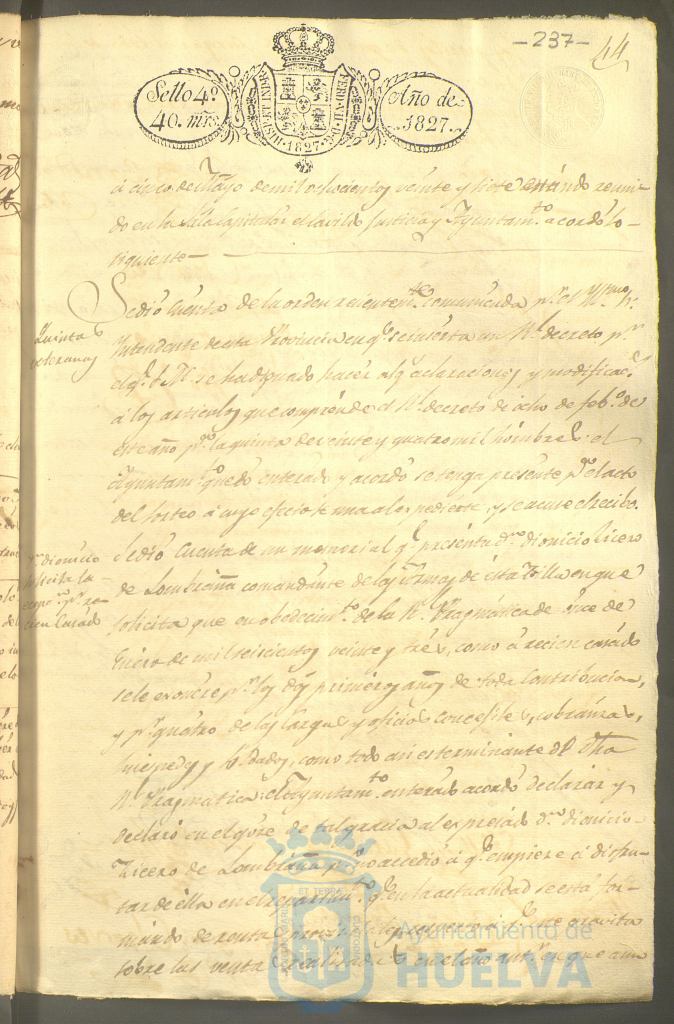 -237- 44
Sello 4º
40. mrs.
HISP. ET IND. R. FERD. VII. D. G. 1827
Año de
1827.
á cinco de Mayo de mil ochocientos veinte y siete estándo reuni-
do en la Sala Capitular el Cavildo Justicia y Ayuntam.to acordó lo
siguiente
Quintas
veteranas
Se dió cuenta de la orden recientem.te comunicada p.r el Yll.mo Sr.
Yntendente de esta Provincia en q.e se inserta un R.l decreto p.r
el q.e S. M. se ha dignado hacer alg.s aclaraciones y modificac.s
á los articulos que comprénde el R.l decreto de ocho de feb.o de
este año p.a la quinta de veinte y quatro mil hombres: el
Ayuntam.to quedó enterado y acordó se tenga presente p.a el acto
del sorteo á cuyo efecto se una al espediente, y se acuse el recibo.
D.n Dionicio
solicita la
p.r re-
cien Casádo
Se dió Cuenta de un memorial q.e presenta D.n Dionicio Licero
de Lombraña comandante de las armas de ésta Villa en que
solicita que en obedecim.to de la R.l Pragmatica de once de
Enero de mil seiscientos veinte y trés, como á recien casádo
se le exonére p.r los dos primeros años de toda Contribucion,
y p.r quatro de las cargas y oficios Concegiles, cobranzas,
huespedes y soldados, como todo asi es terminante de dha
R.l Pragmatica: el Ayuntam.to enterádo acordó declarár y
declaró en el góse de tal gracia al expresádo D.n Dionicio
Licero de Lombraña p.o no accedió á q.e empiese á disfru-
tar de élla en el repartim.to q.e en la actualidad se está for-
mando de renta q.e gravita
sobre las ventas realisadas en el año ant.or en que aun
ET TERRAE
Ayuntamiento de
HUELVA